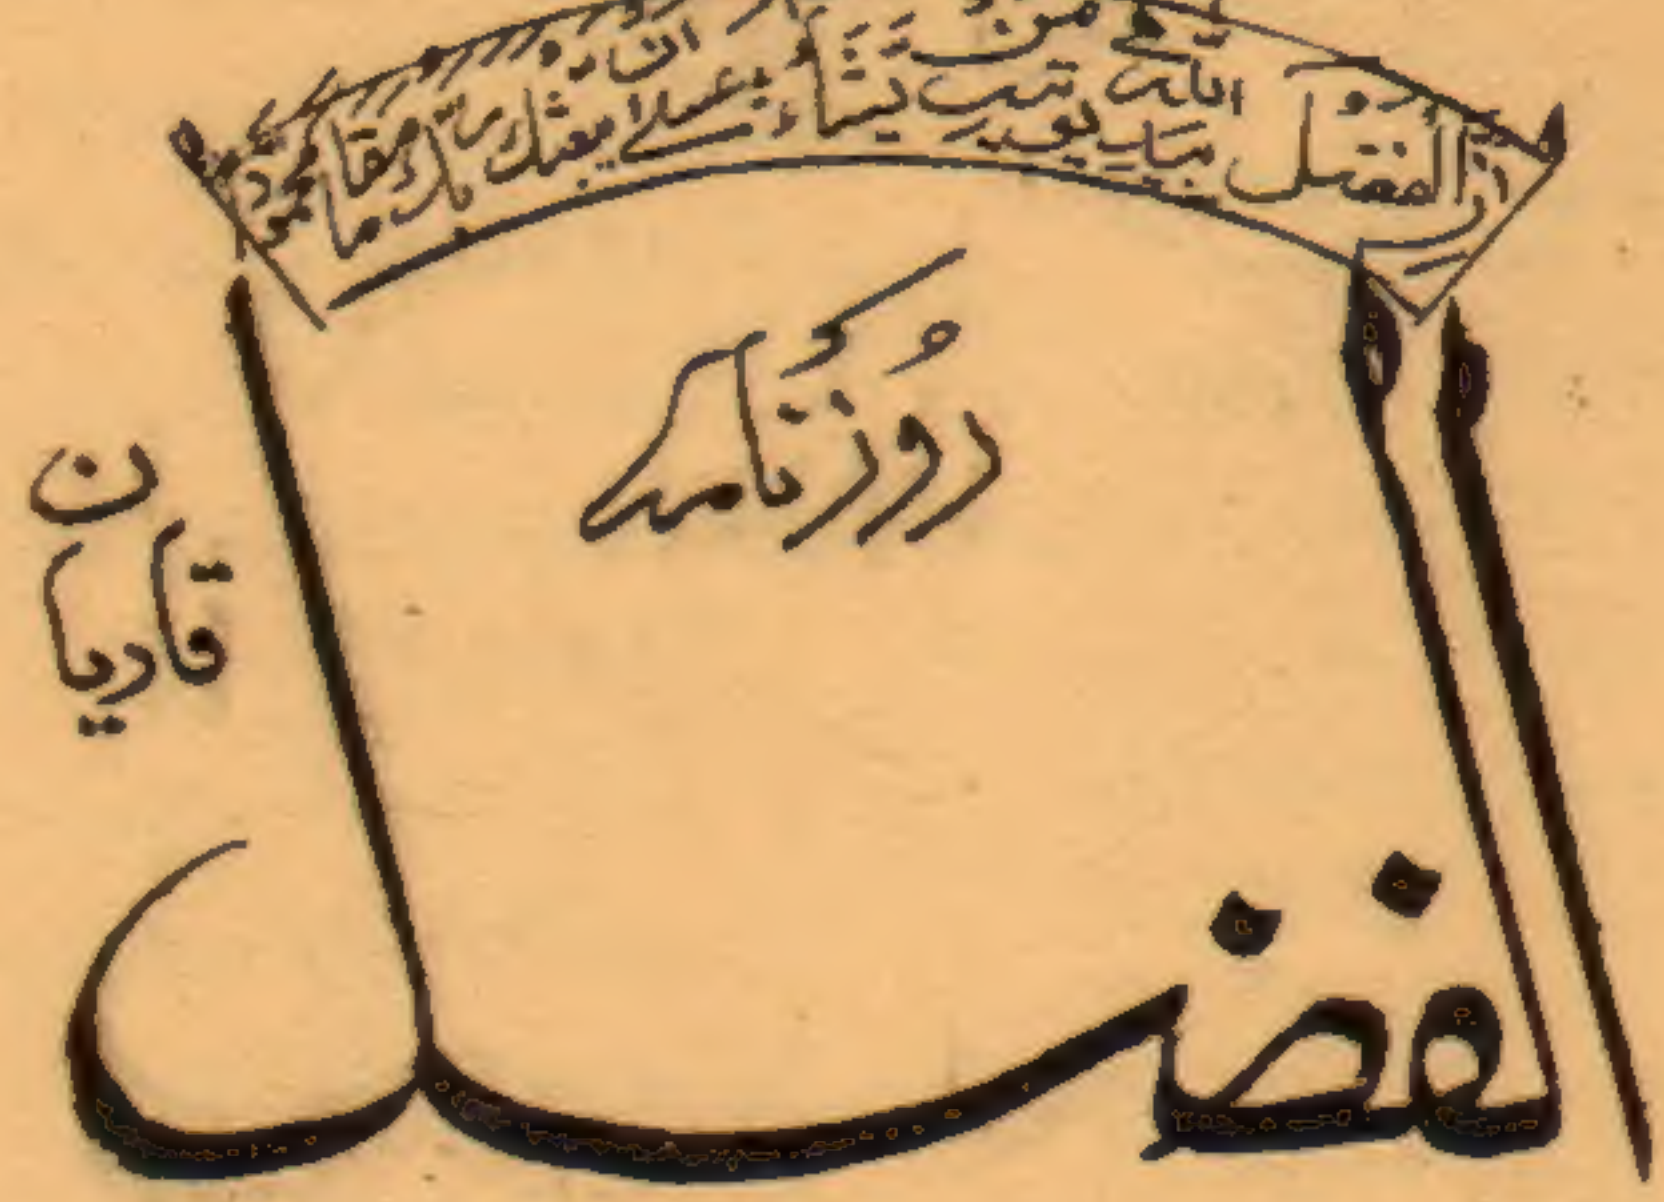 ان الفضل بيد الله يؤتيه من يشاء عسى ان يبعثك ربك مقاما محمودا
روزنامہ
الفضل
قادیان